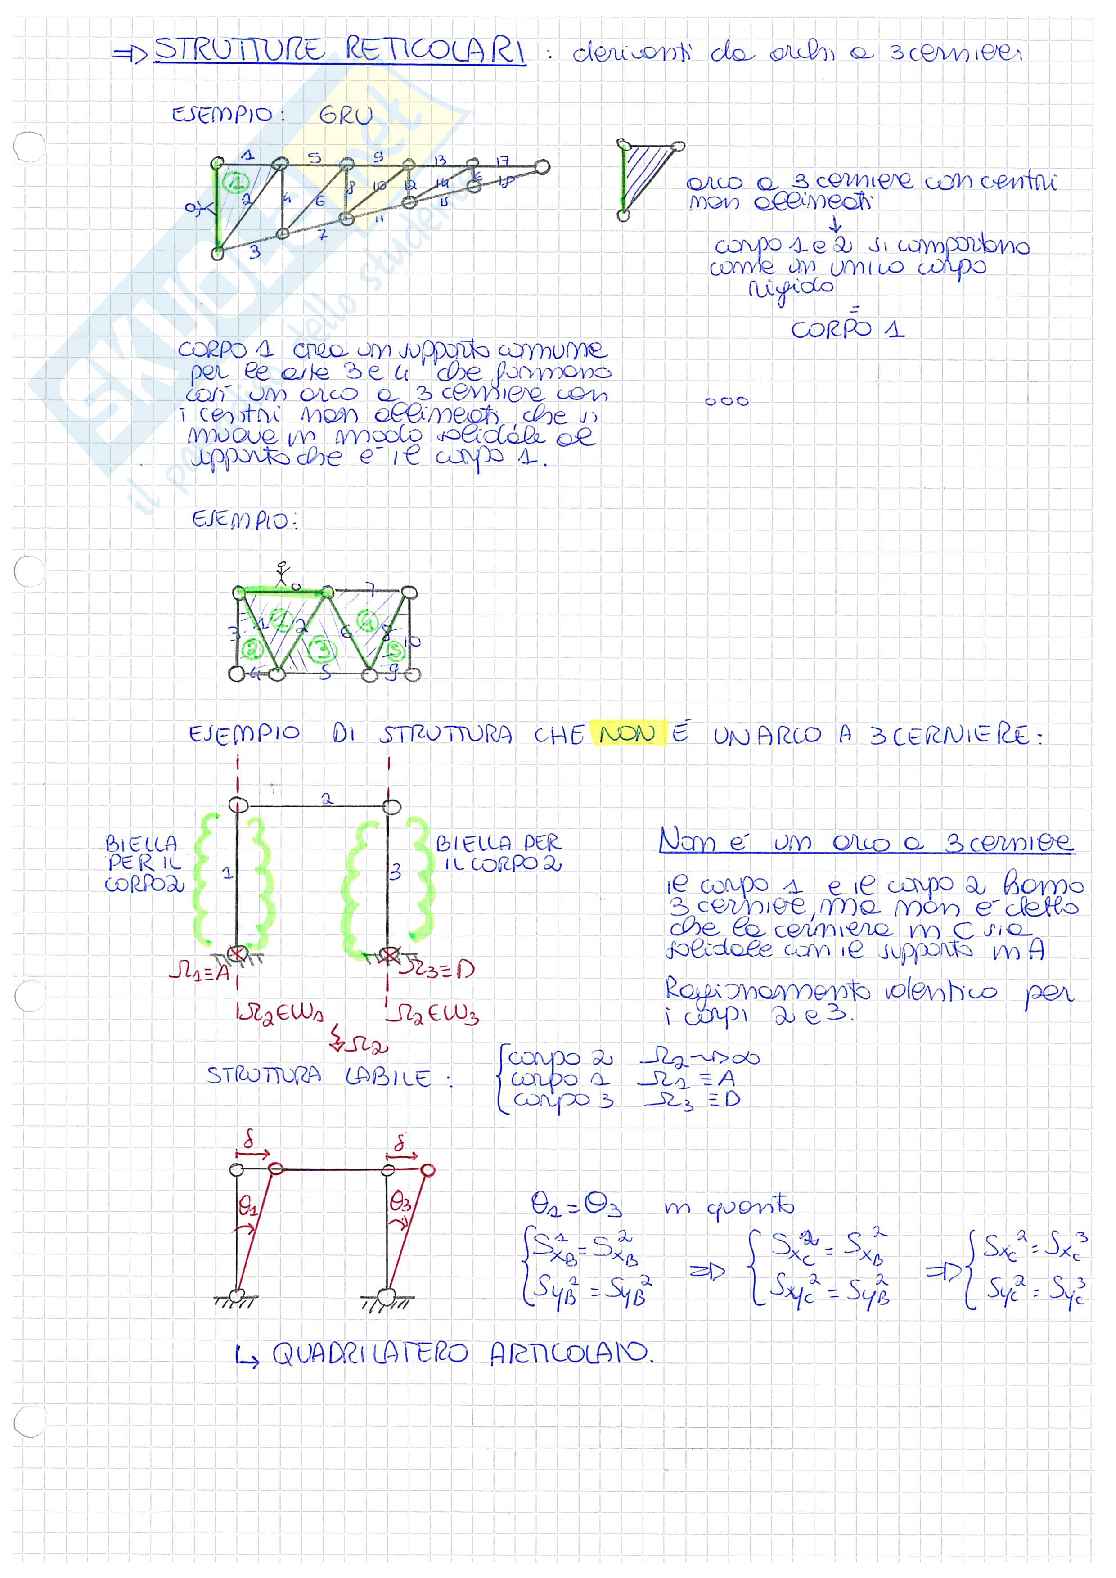 ⇒ STRUTTURE RETICOLARI : derivanti da archi a 3 cerniere:
ESEMPIO: GRU
1 5 9 13 17
1
0 2 4 6 8 10 12 14 16 18
3 7 11 15
arco a 3 cerniere con centri
non allineati
↓
corpo 1 e 2 si comportano
come un unico corpo
rigido
=
CORPO 1
CORPO 1 crea un supporto comune
per le aste 3 e 4 che formano
così un arco a 3 cerniere con
i centri non allineati, che si
muove in modo solidale al
supporto che è il corpo 1.
ooo
ESEMPIO:
0 7
3 1 1 2 6 4 8 10
2 3 5
4 5 9
ESEMPIO DI STRUTTURA CHE NON È UN ARCO A 3 CERNIERE:
2
BIELLA
PER IL
CORPO 2
1
3
BIELLA PER
IL CORPO 2
Non è un arco a 3 cerniere
il corpo 1 e il corpo 2 hanno
3 cerniere, ma non è detto
che la cerniera in C sia
solidale con il supporto in A
Ragionamento identico per
i corpi 2 e 3.
Ω1≡A
Ω3≡D
Ω2∈W1
Ω2∈W3
Ω2
STRUTTURA LABILE:
corpo 2 Ω2 → ∞
corpo 1 Ω1 ≡ A
corpo 3 Ω3 ≡ D
δ δ
θ1 θ3
θ1 = θ3 in quanto
{ S_xB^1 = S_xB^2 ⇒ { S_xC^2 = S_xB^2 ⇒ { S_xC^2 = S_xC^3
S_yB^1 = S_yB^2 S_yC^2 = S_yB^2 S_yC^2 = S_yC^3
↳ QUADRILATERO ARTICOLATO.